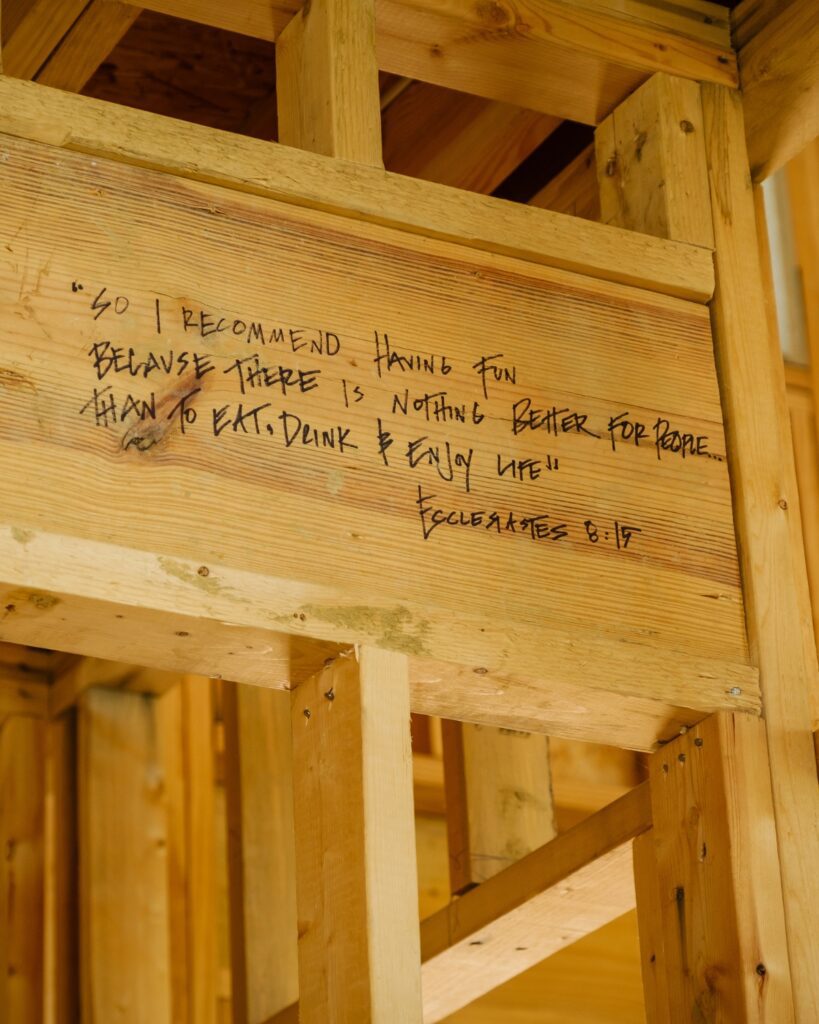 "SO I RECOMMEND HAVING FUN
BECAUSE THERE IS NOTHING BETTER FOR PEOPLE...
THAN TO EAT, DRINK & ENJOY LIFE"
ECCLESIASTES 8:15